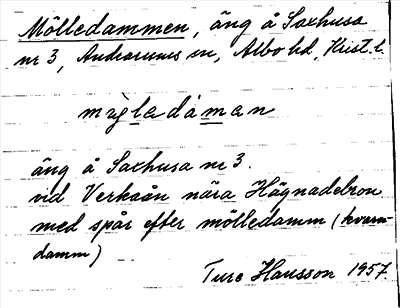 Mölledammen, äng å Saxhusa
nr 3, Andrarums sn, Albo hd, Krist. l.
äng å Saxhusa nr 3.
vid Verkaån nära Hägnadebron
med spår efter mölledamm (kvarn-
damm)
Ture Hansson 1957.